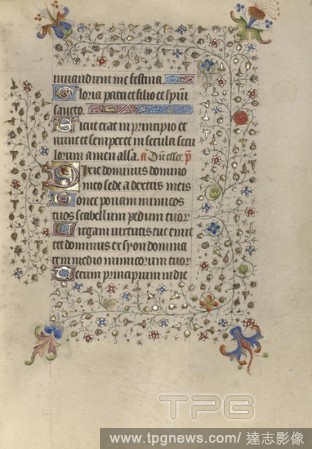 iuuandum me festina.
Gloria patri et filio et spiri
sancto.
Sicut erat in principio et
nunc et semper et in secula secu
lorum amen alla. a Du celler. p
Dixit dominus domino
meo sede a dextris meis
Donec ponam inimicos
tuos scabellum pedum tuor
Virgam virtutis tue emit
tet dominus ex syon domina
re in medio inimicorum tuor
Tecum principium in die
TPG
www.tpgnews.com/ 達志影像